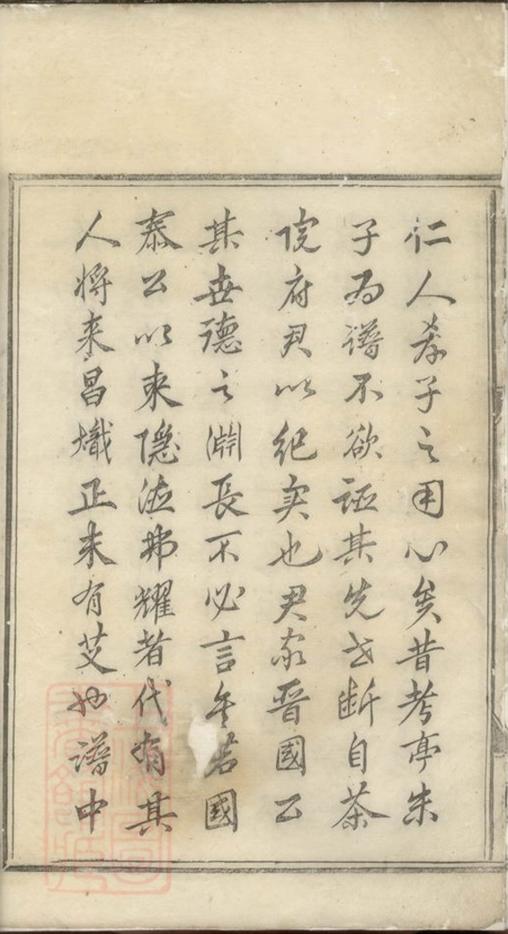 仁人孝子之用心矣昔考亭朱
子為譜不欲誣其先世断自茶
院府君以紀实也尹家晋國公
其世德之淵長不必言矣若國
泰公以来隐德弗耀者代有其
人将来昌熾正未有艾也譜中